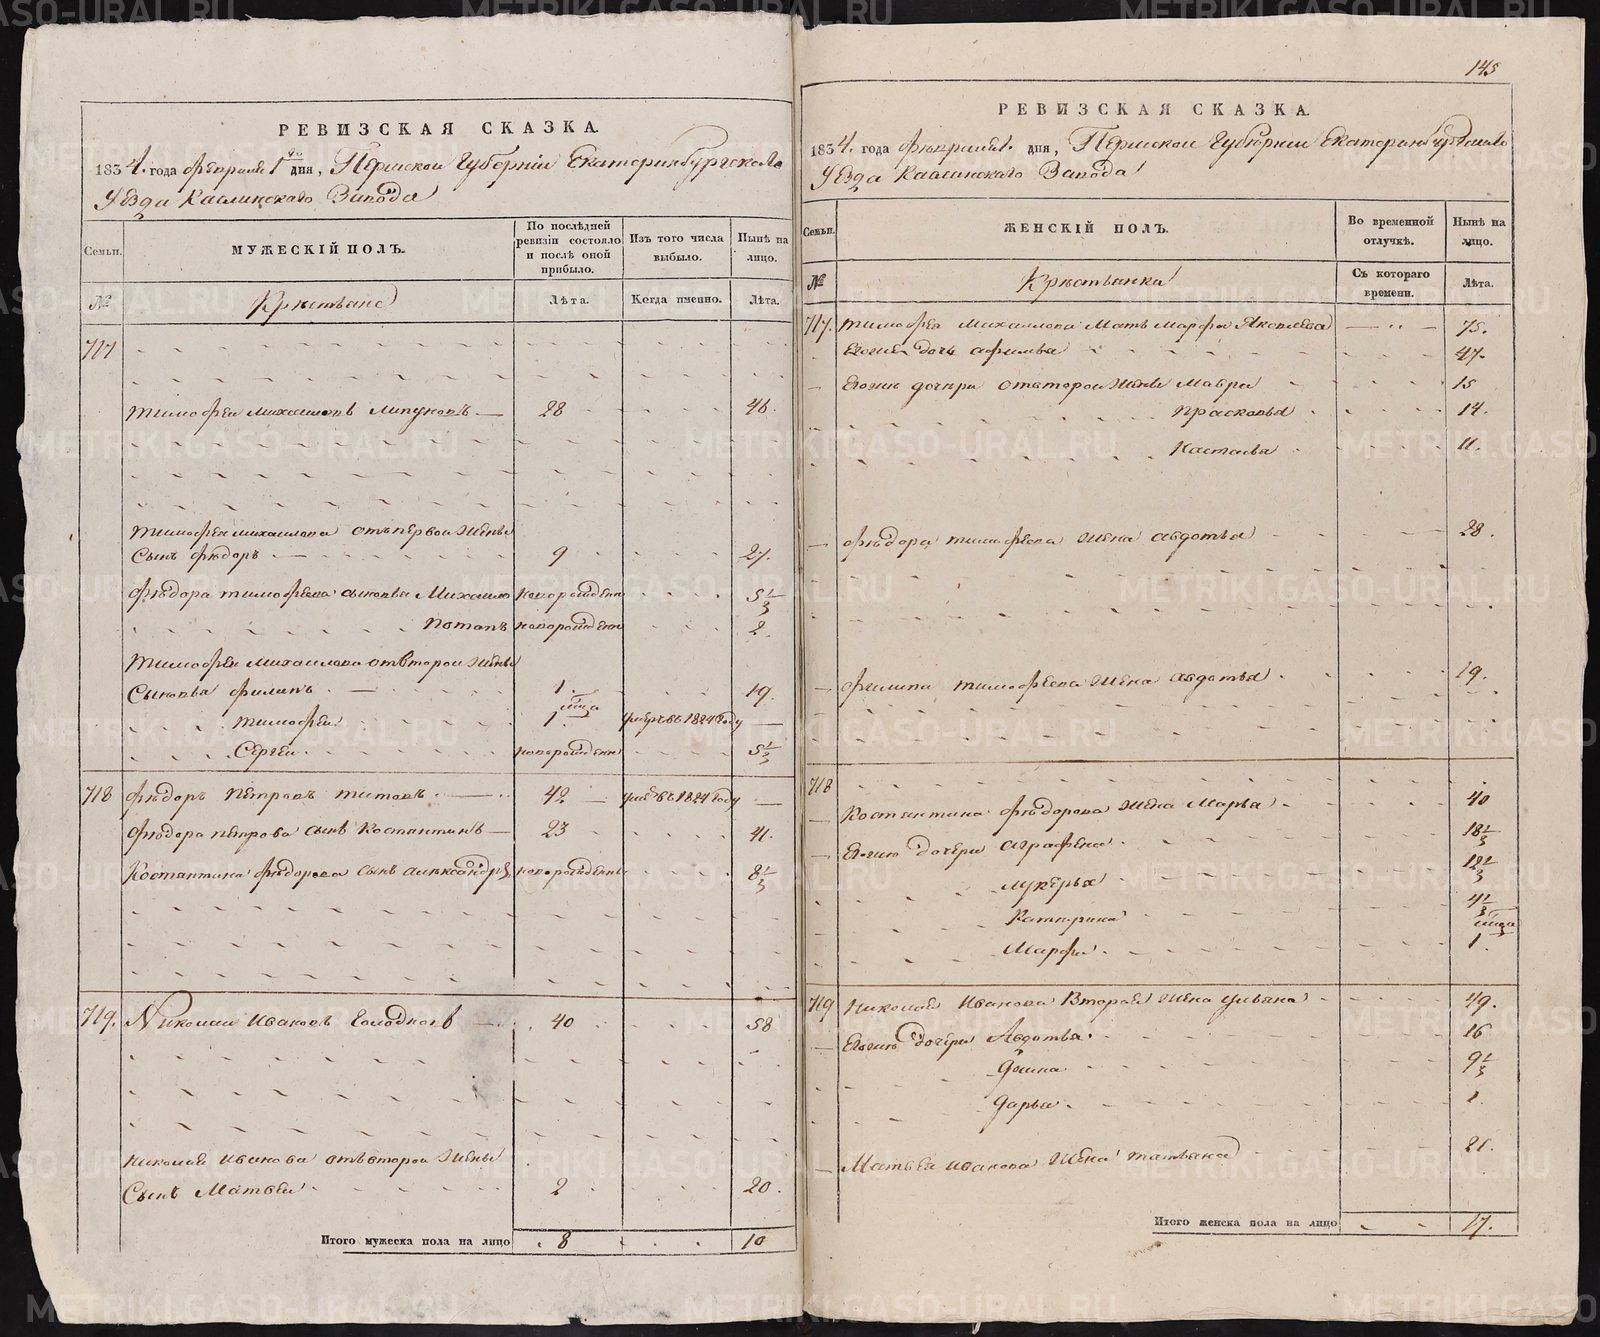 METRIKI.GASO-URAL.RU
РЕВИЗСКАЯ СКАЗКА.
1834. года февраля 1го дня, Пермской Губернии Екатеринбургскаго
Уезда Каслинскаго Завода
Семьи.
МУЖЕСКІЙ ПОЛЪ.
По послѣдней ревизіи состояло и послѣ оной прибыло.
Изъ того числа выбыло.
Нынѣ на лицо.
№
Крестьяне
Лѣта.
Когда именно.
Лѣта.
717
Тимофеи Михаиловъ 28 46.
Тимофея Михаилова отъ первои жены
Сынъ Федоръ 9 27.
Федора Тимофеева сыновья Михаило новорожденн 5 1/3
Потапъ новорожденн 2.
Тимофея Михаилова от второи жены
Сыновья Филипъ 1. 19.
Тимофеи 1. умеръ въ 1824 году
Сергеи новорожденн 5 1/3
718 Федоръ Петровъ Титовъ 42 умеръ въ 1824 году
Федора Петрова сынъ Костантинъ 23 41.
Костантина Федорова сынъ Александръ новорожденн 8 1/3
719. Николаи Ивановъ Голодновъ 40 58
Николая Иванова отъ второи жены
Сынъ Матвеи 2 20.
Итого мужеска пола на лицо 8 10
145
РЕВИЗСКАЯ СКАЗКА.
1834. года февраля 1. дня, Пермской Губернии Екатеринбургскаго
Уезда Каслинскаго Завода
Семьи.
ЖЕНСКІЙ ПОЛЪ.
Во временной отлучкѣ.
Нынѣ на лицо.
№
Крестьянка
Съ котораго времени.
Лѣта.
717. Тимофея Михаилова Мать Марфа Яковлева 75.
47.
Ево же дочери от второи жены Мавра 15
Прасковья 14.
11.
Федора Тимофеева жена Авдотья 28.
Филипа Тимофеева жена Авдотья 19.
718
Костантина Федорова жена Марья 40
Евоже дочери Аграфена 18 1/3
Лукерья
Катирина 4 1/3
Марфа 1.
719 Николая Иванова Вторая жена Ульяна 49.
Евоже дочери Авдотья 16
9 1/3
Дарья
Матвея Иванова жена Татьяна 21.
Итого женска пола на лицо 17.